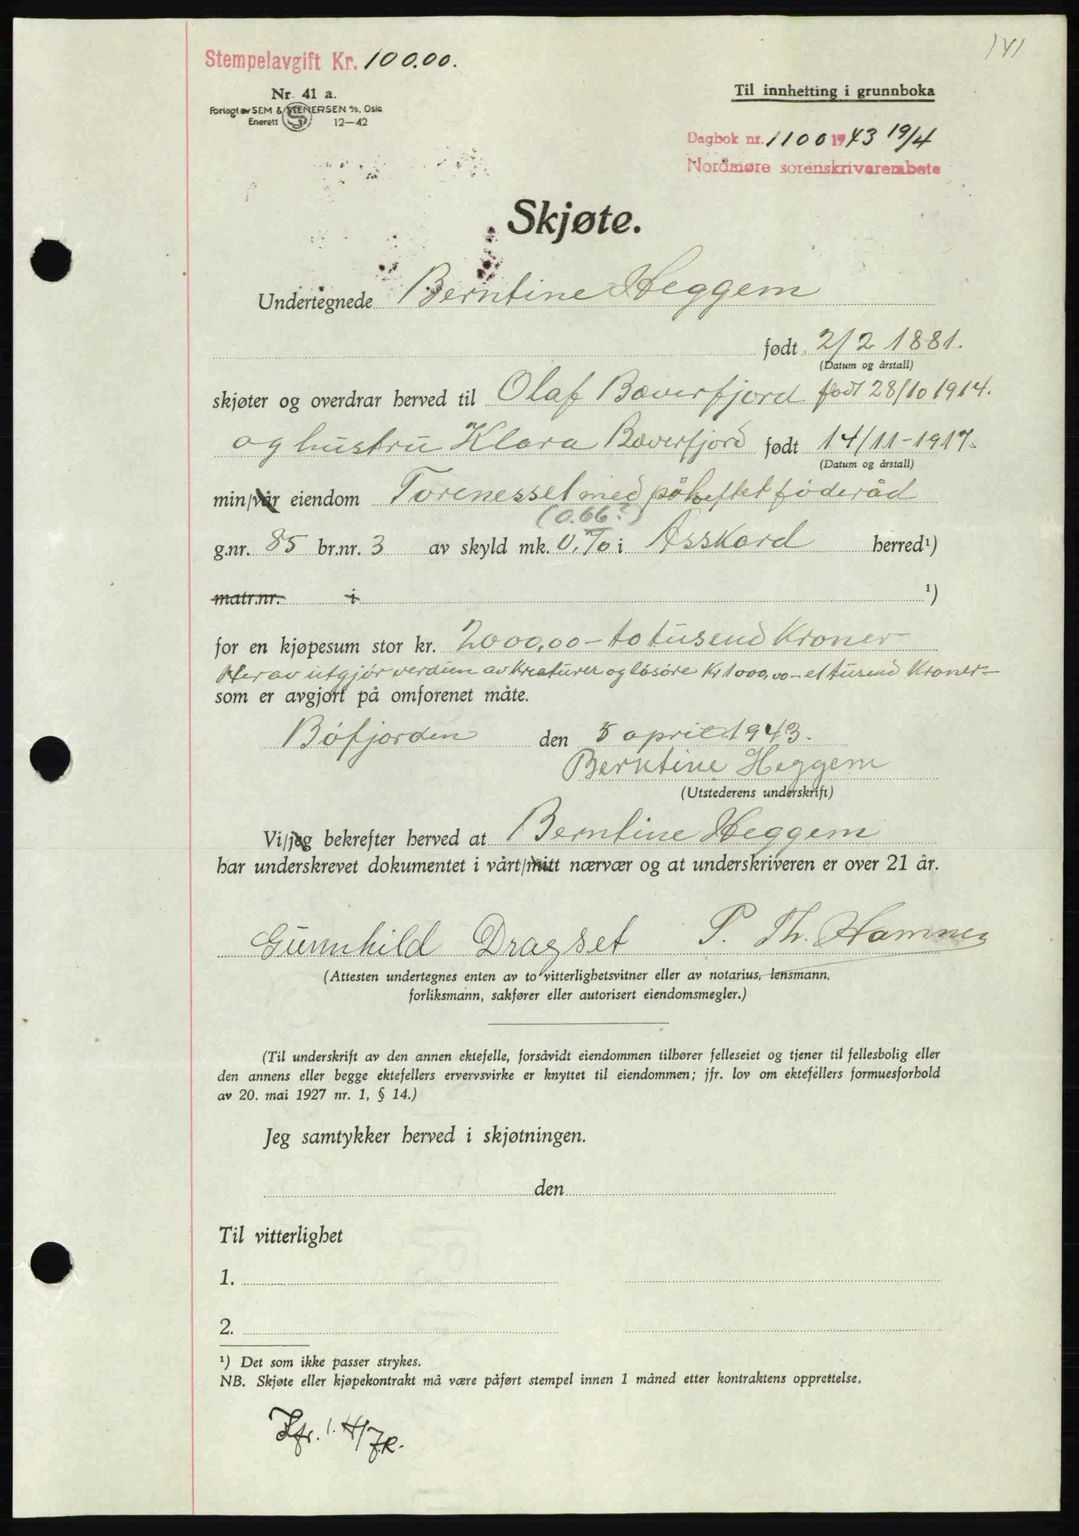 181
Stempelavgift Kr. 100.00.
Nr. 41 a.
Forlagt av SEM & STENERSEN A/S, Oslo
Enerett 12—42
Til innhefting i grunnboka
Dagbok nr. 1100 1943 19/4
Nordmøre sorenskrivarembete
Skjøte.
Undertegnede Berntine Heggem
født 2/2 1881.
(Datum og årstall)
skjøter og overdrar herved til Olaf Bæverfjord født 28/10 1914.
og hustru Klara Bæverfjord født 14/11-1917.
(Datum og årstall)
min/vår eiendom Torenesset med påheftet føderåd
(0.66?)
g.nr. 85 br.nr. 3 av skyld mk. 0.70 i Åsskard herred¹)
matr.nr. i ¹)
for en kjøpesum stor kr. 2000,00 — totusend Kroner
Herav utgjør verdien av Kreaturer og løsøre Kr 1000,00 — et tusend Kroner —
som er avgjort på omforenet måte.
Bøfjorden den 5 april 1943.
Berntine Heggem
(Utstederens underskrift)
Vi/jeg bekrefter herved at Berntine Heggem
har underskrevet dokumentet i vårt/mitt nærvær og at underskriveren er over 21 år.
Gunnhild Dragset P. Th. Hamnes
(Attesten undertegnes enten av to vitterlighetsvitner eller av notarius, lensmann,
forliksmann, sakfører eller autorisert eiendomsmegler.)
(Til underskrift av den annen ektefelle, forsåvidt eiendommen tilhører felleseiet og tjener til fellesbolig eller
den annens eller begge ektefellers ervervsvirke er knyttet til eiendommen; jfr. lov om ektefellers formuesforhold
av 20. mai 1927 nr. 1, § 14.)
Jeg samtykker herved i skjøtningen.
den
Til vitterlighet
1.
2.
¹) Det som ikke passer strykes.
NB. Skjøte eller kjøpekontrakt må være påført stempel innen 1 måned etter kontraktens opprettelse.